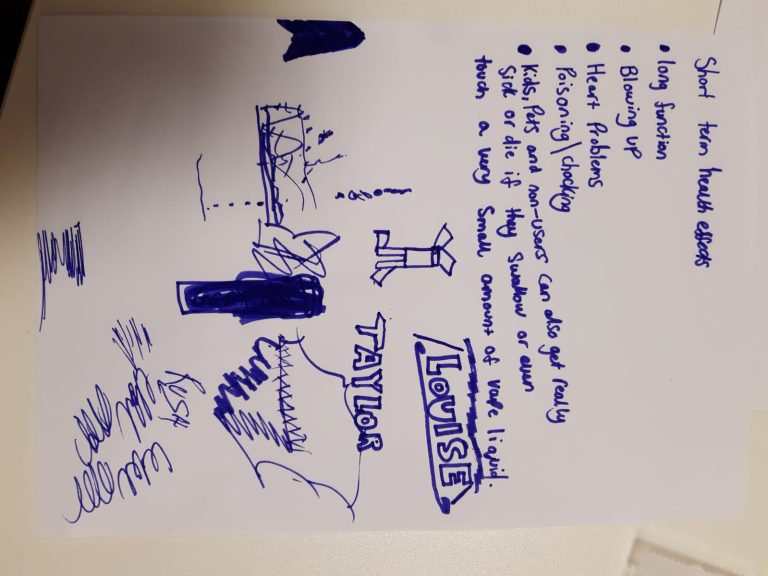 Short term health effects
• long function
• Blowing up
• Heart Problems
• Poisoning\chocking
• Kids, Pets and non-users can also get really
Sick or die if they Swallow or even
touch a very small amount of vape liquid.
LOUISE
TAYLOR